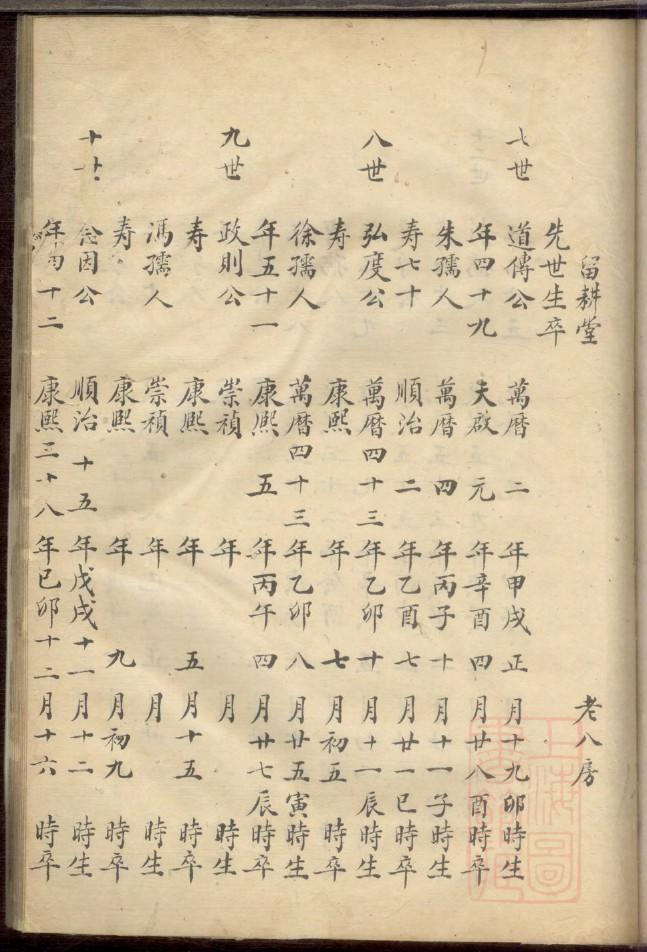 留耕堂 老八房
先世生卒
七世 道傳公 萬曆二年甲戌正月十九卯時生
年四十九 天啟元年辛酉四月廿八酉時卒
朱孺人 萬曆四年丙子十月十一子時生
寿七十 順治二年乙酉七月廿一巳時卒
八世 弘度公 萬曆四十三年乙卯十月十一辰時生
寿 康熙年七月初五時卒
徐孺人 萬曆四十三年乙卯八月廿五寅時生
年五十一 康熙五年丙午四月廿七辰時卒
九世 政則公 崇禎年月時生
寿 康熙年五月十五時卒
馮孺人 崇禎年月時生
寿 康熙年九月初九時卒
十世 念因公 順治十五年戊戌十一月十二時生
年四十二 康熙三十八年己卯十二月十六時卒
上海圖書館藏